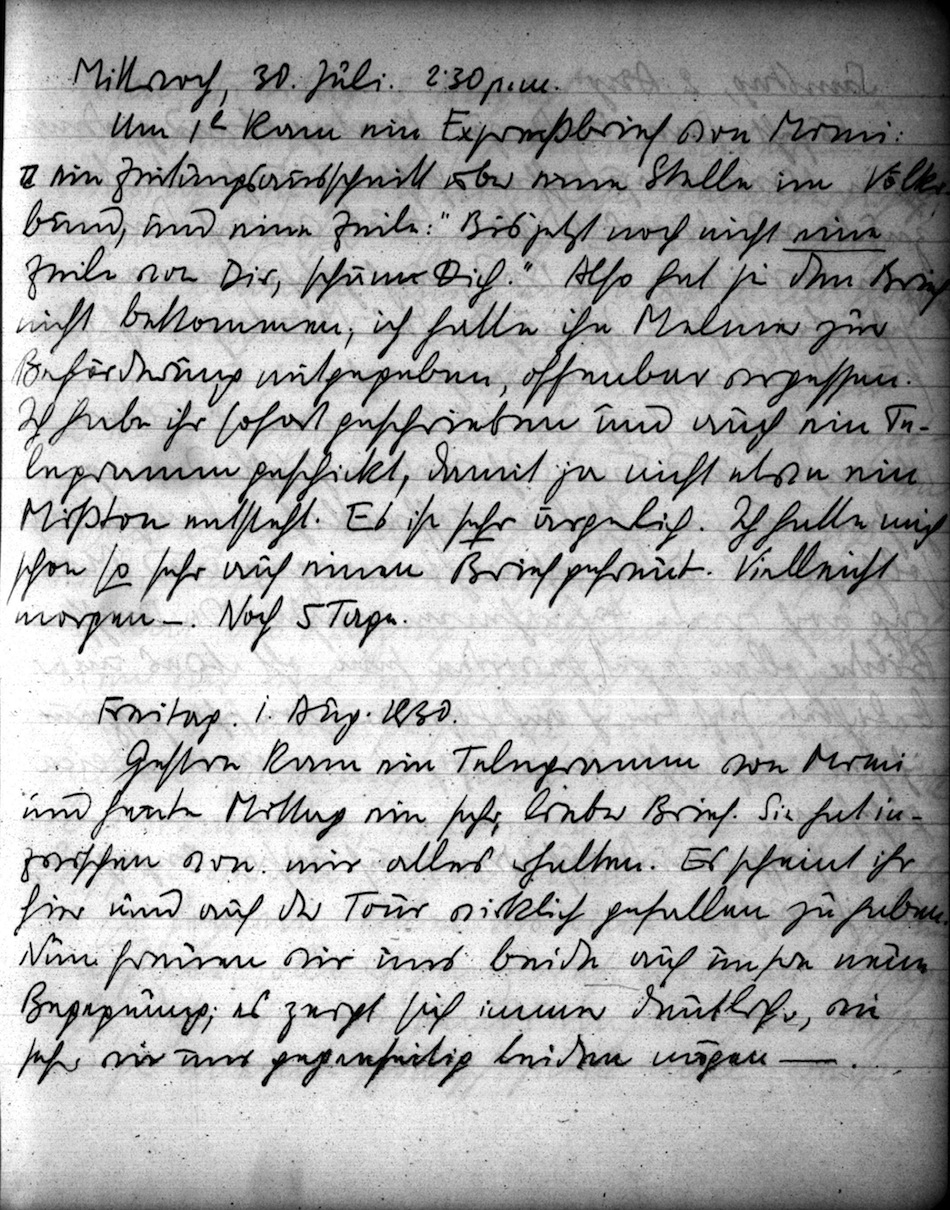 Mittwoch, 30. Juli. 2:30 p.m.
Um 1h kam ein Expreßbrief von Mimi:
ein Zeitungsausschnitt über eine Stelle im Völker-
bund, und eine Zeile: "Bis jetzt noch nicht eine
Zeile von Dir, schäme Dich." Also hat sie den Brief
nicht bekommen, ich hatte ihn zur
Beförderung mitgegeben, offenbar vergessen.
Ich habe ihr sofort geschrieben und auch ein Te-
legramm geschickt, damit ja nicht etwa ein
Mißton entsteht. Es ist sehr ärgerlich. Ich hatte mich
schon so sehr auf einen Brief gefreut. Vielleicht
morgen —. Noch 5 Tage.
Freitag. 1. Aug. 1930.
Gestern kam ein Telegramm von Mimi
und heute Mittag ein sehr lieber Brief. Sie hat in-
zwischen von mir alles erhalten. Es scheint ihr
hier und auf der Tour wirklich gefallen zu haben.
Nun freuen wir uns beide auf unsere neue
Begegnung; es zeigt sich immer deutlicher, wie
sehr wir uns gegenseitig leiden mögen —.